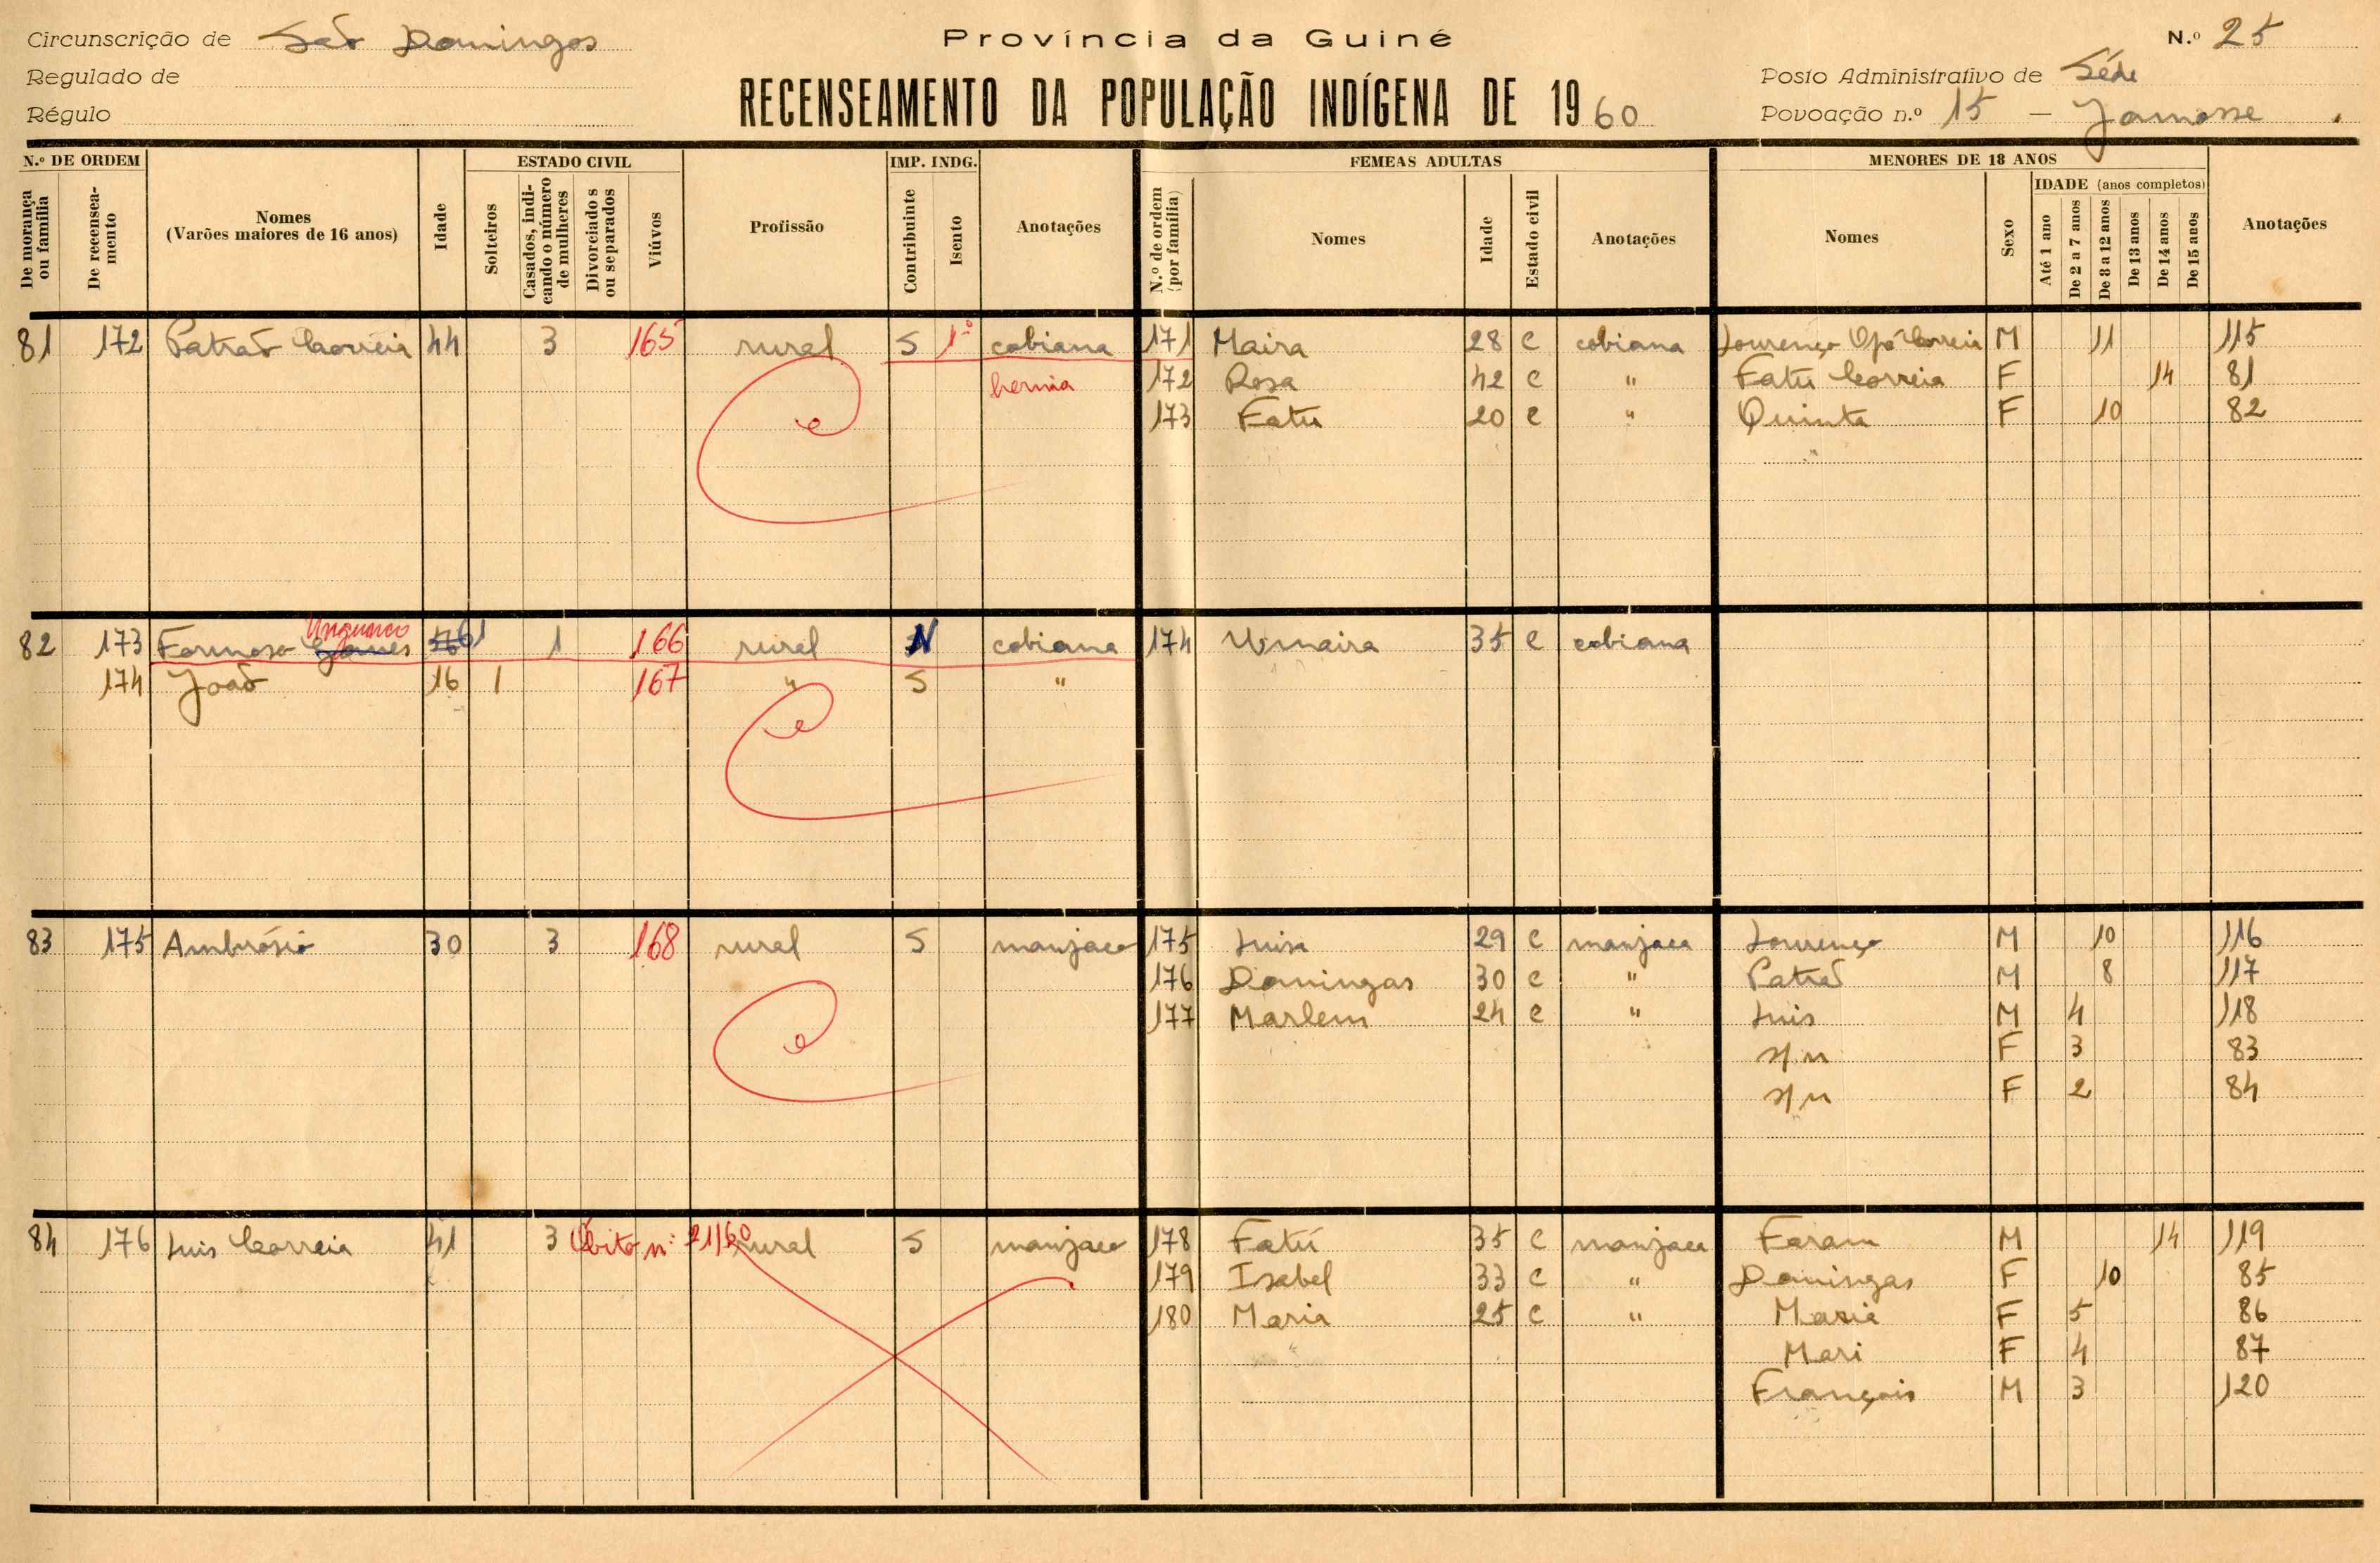 Circunscrição de São Domingos
Província da Guiné
N.º 25
Regulado de
RECENSEAMENTO DA POPULAÇÃO INDÍGENA DE 1960
Posto Administrativo de Séde
Régulo
Povoação n.º 15 -
N.º DE ORDEM
De morança ou família
De recenseamento
Nomes
(Varões maiores de 16 anos)
Idade
ESTADO CIVIL
Solteiros
Casados, indicando o número de mulheres
Divorciados ou separados
Viúvos
Profissão
IMP. INDG.
Contribuinte
Isento
Anotações
FEMEAS ADULTAS
N.º de ordem (por família)
Nomes
Idade
Estado civil
Anotações
MENORES DE 18 ANOS
Nomes
Sexo
IDADE (anos completos)
Até 1 ano
De 2 a 7 anos
De 8 a 12 anos
De 13 anos
De 14 anos
De 15 anos
Anotações
81 172 Patrão Correia 44 3 165 rural S 1º cobiana 171 Maira 28 C cobiana Lourenço Correia M 11 115
hernia 172 Rosa 42 C " Fatu Correia F 14 81
173 Fatu 20 C " Quinta F 10 82
82 173 Formoso Gomes 61 1 166 rural N cobiana 174 35 C cobiana
174 João 16 1 167 " S "
83 175 Ambrósio 30 3 168 rural S manjaco 175 Luisa 29 C manjaca Lourenço M 10 116
176 Domingas 30 C " Patrão M 8 117
177 Marlem 24 C " Luis M 4 118
s/n F 3 83
s/n F 2 84
84 176 Luis Correia 41 3 Óbito n.º 21/60 rural S manjaco 178 Fatú 35 C manjaca Faram M 14 119
179 Isabel 33 C " Domingas F 10 85
180 Maria 25 C " Maria F 5 86
Mari F 4 87
François M 3 120